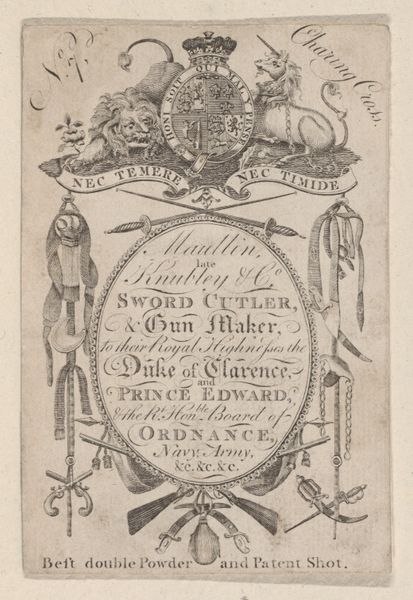 No. 7.
Charing Cross.
HONI SOIT QUI MAL Y PENSE
NEC TEMERE NEC TIMIDE
Maudlin,
late
Knubley & Co.
SWORD CUTLER,
& Gun Maker,
To their Royal Highneſses the
Duke of Clarence,
and
PRINCE EDWARD,
& the Rt. Honble. Board of
ORDNANCE,
Navy, Army,
&c. &c. &c.
Beſt double Powder and Patent Shot.